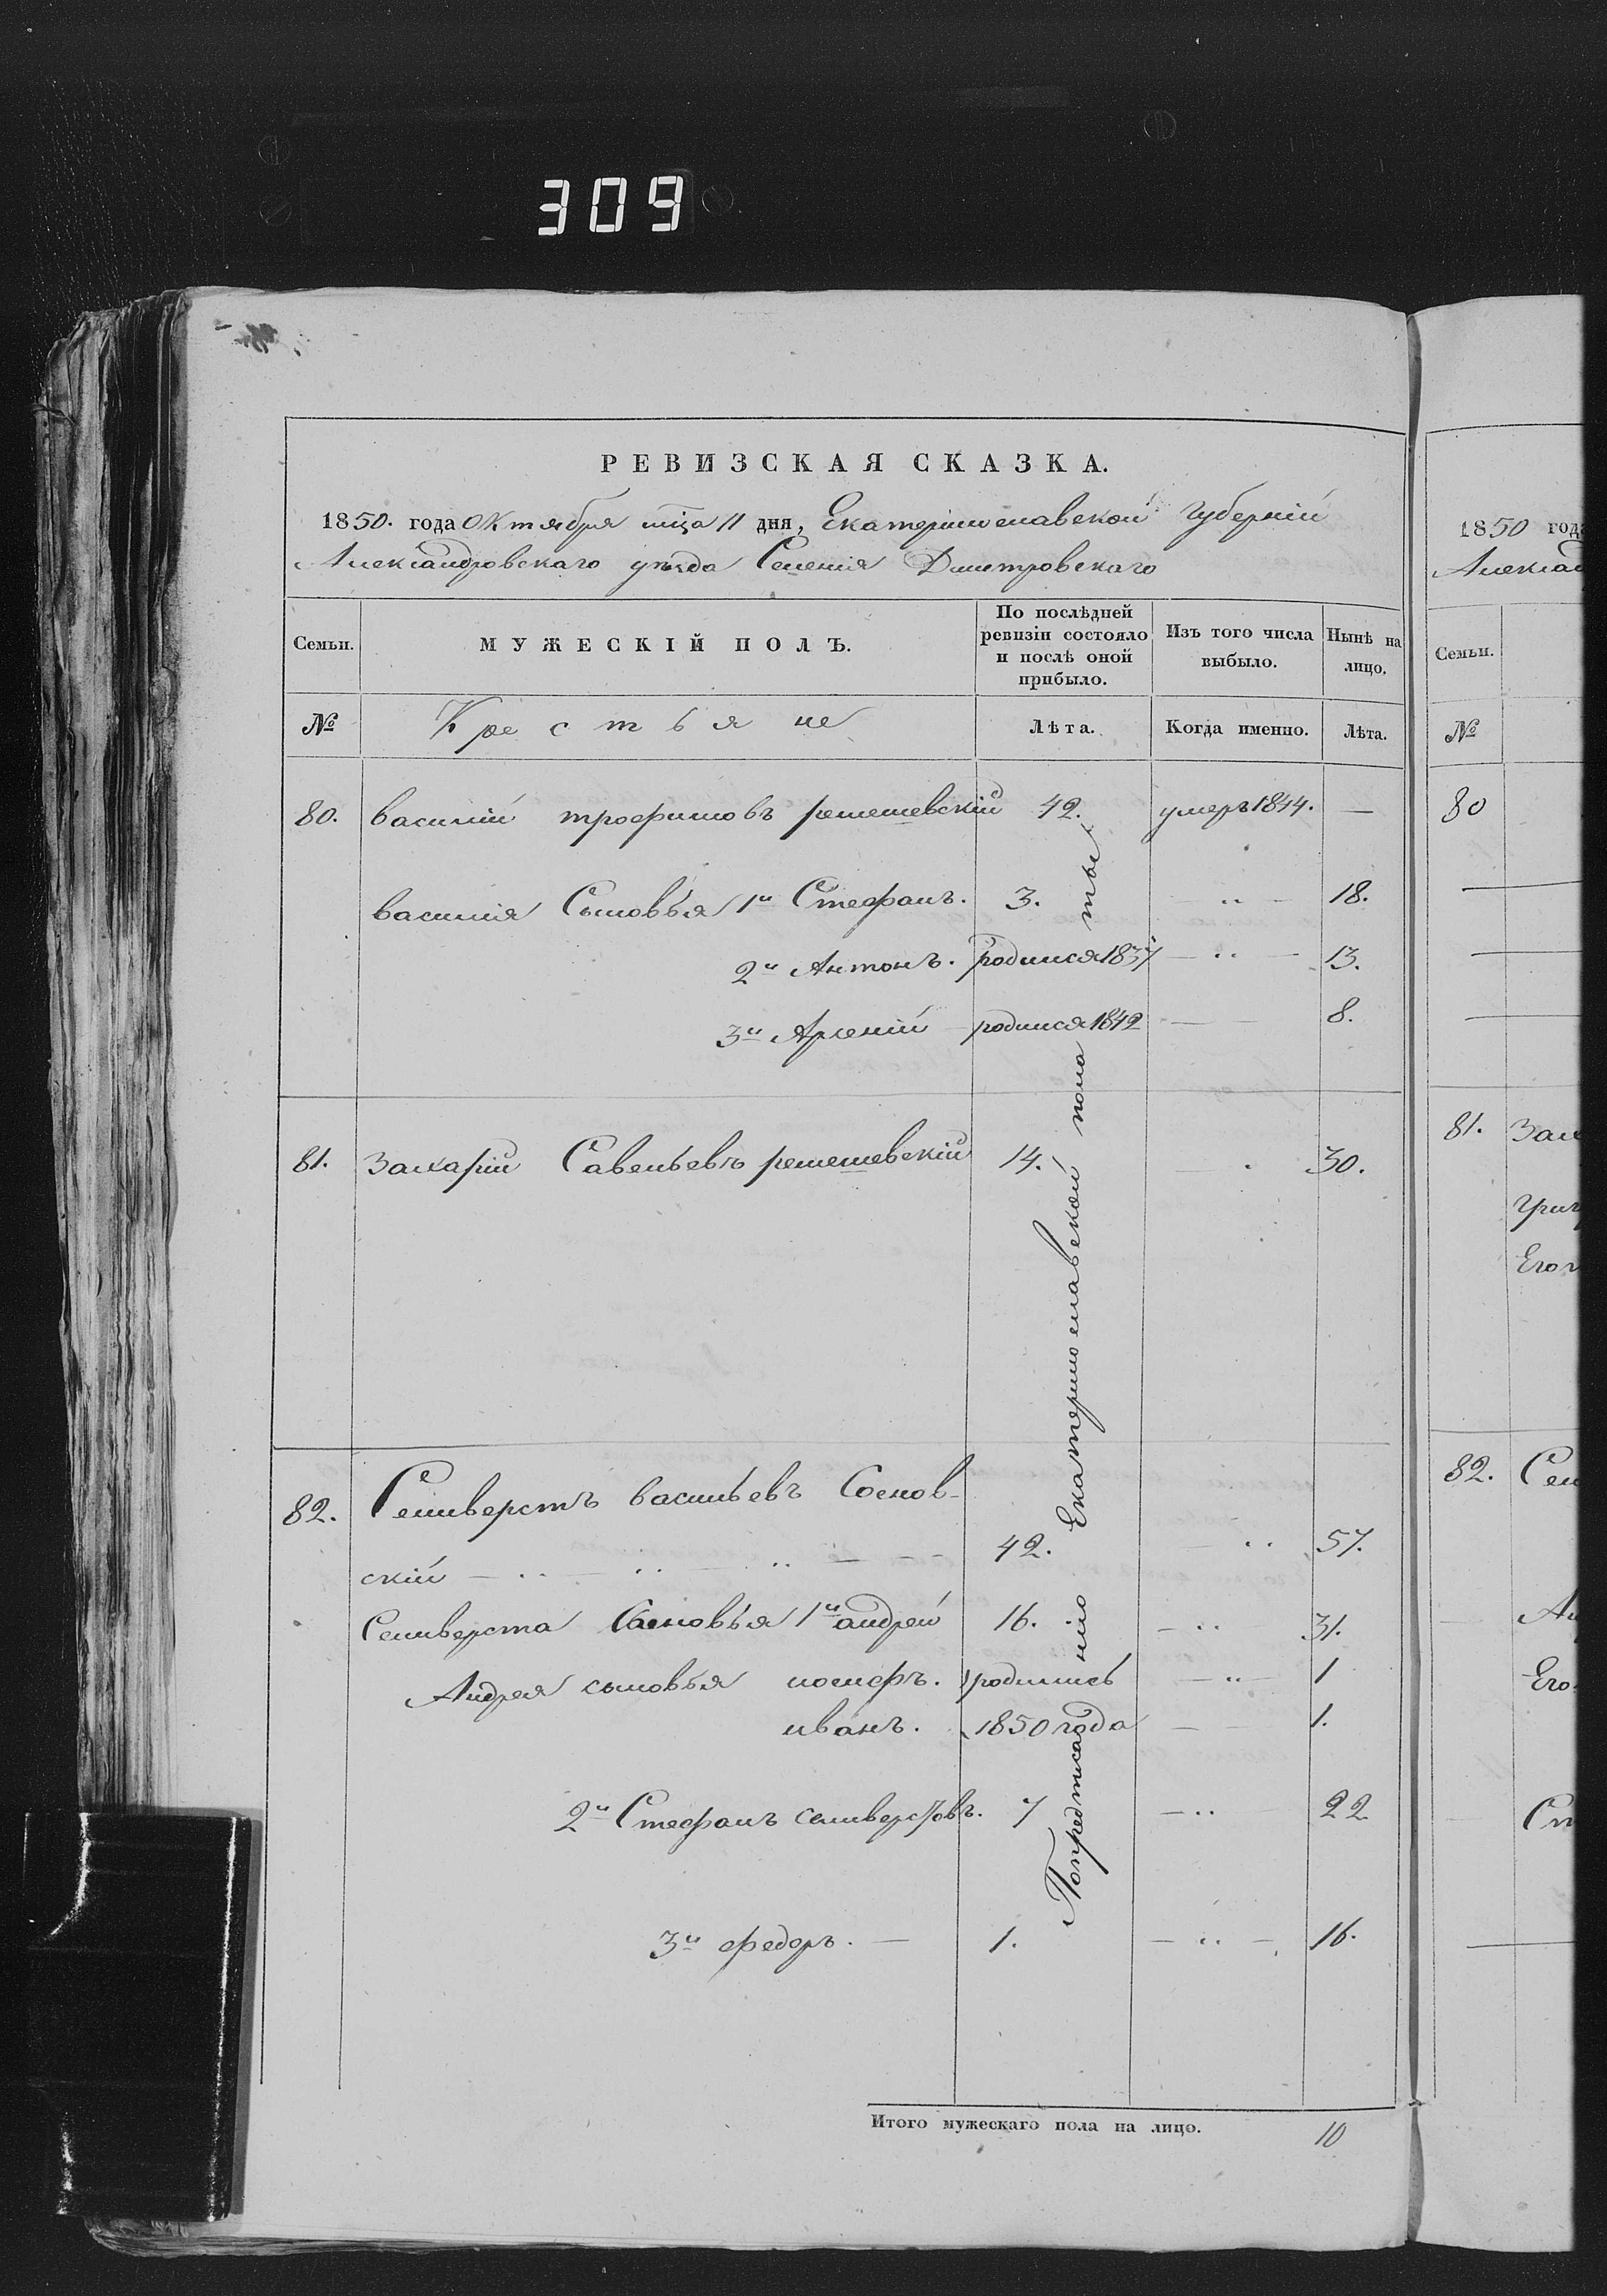 309
РЕВИЗСКАЯ СКАЗКА.
1850. года Октября мца 11 дня, Екатеринославской Губерніи
Александровскаго уѣзда Селенія Дмитровскаго
Семьи. МУЖЕСКІЙ ПОЛЪ. По послѣдней ревизіи состояло и послѣ оной прибыло. Изъ того числа выбыло. Нынѣ на лицо.
№ Крестьяне Лѣта. Когда именно. Лѣта.
80. василій трофимовъ решешевскій 42. умеръ 1844. —
василія Сыновья 1й Стефанъ. 3. 18.
2й Антонъ. родился 1837 13.
3й Арсеній родился 1842 8.
81. Захарій Савельевъ решешевскій 14. 30.
82. Селиверстъ васильевъ Соснов-
скій 42. 57.
Селиверста Сыновья 1й андрей 16. 31.
Андрея сыновья иосифъ. родились 1
иванъ. 1850 года 1.
2й Стефанъ селиверстовъ. 7 22
3й федоръ. — 1. 16.
Итого мужескаго пола на лицо. 10
Попредписанію Екатеринославской пола ты
1850 года
Александ
Семьи.
№
80
81. Зах
Григ
Его
82. Сели
Ан
Его
Ст